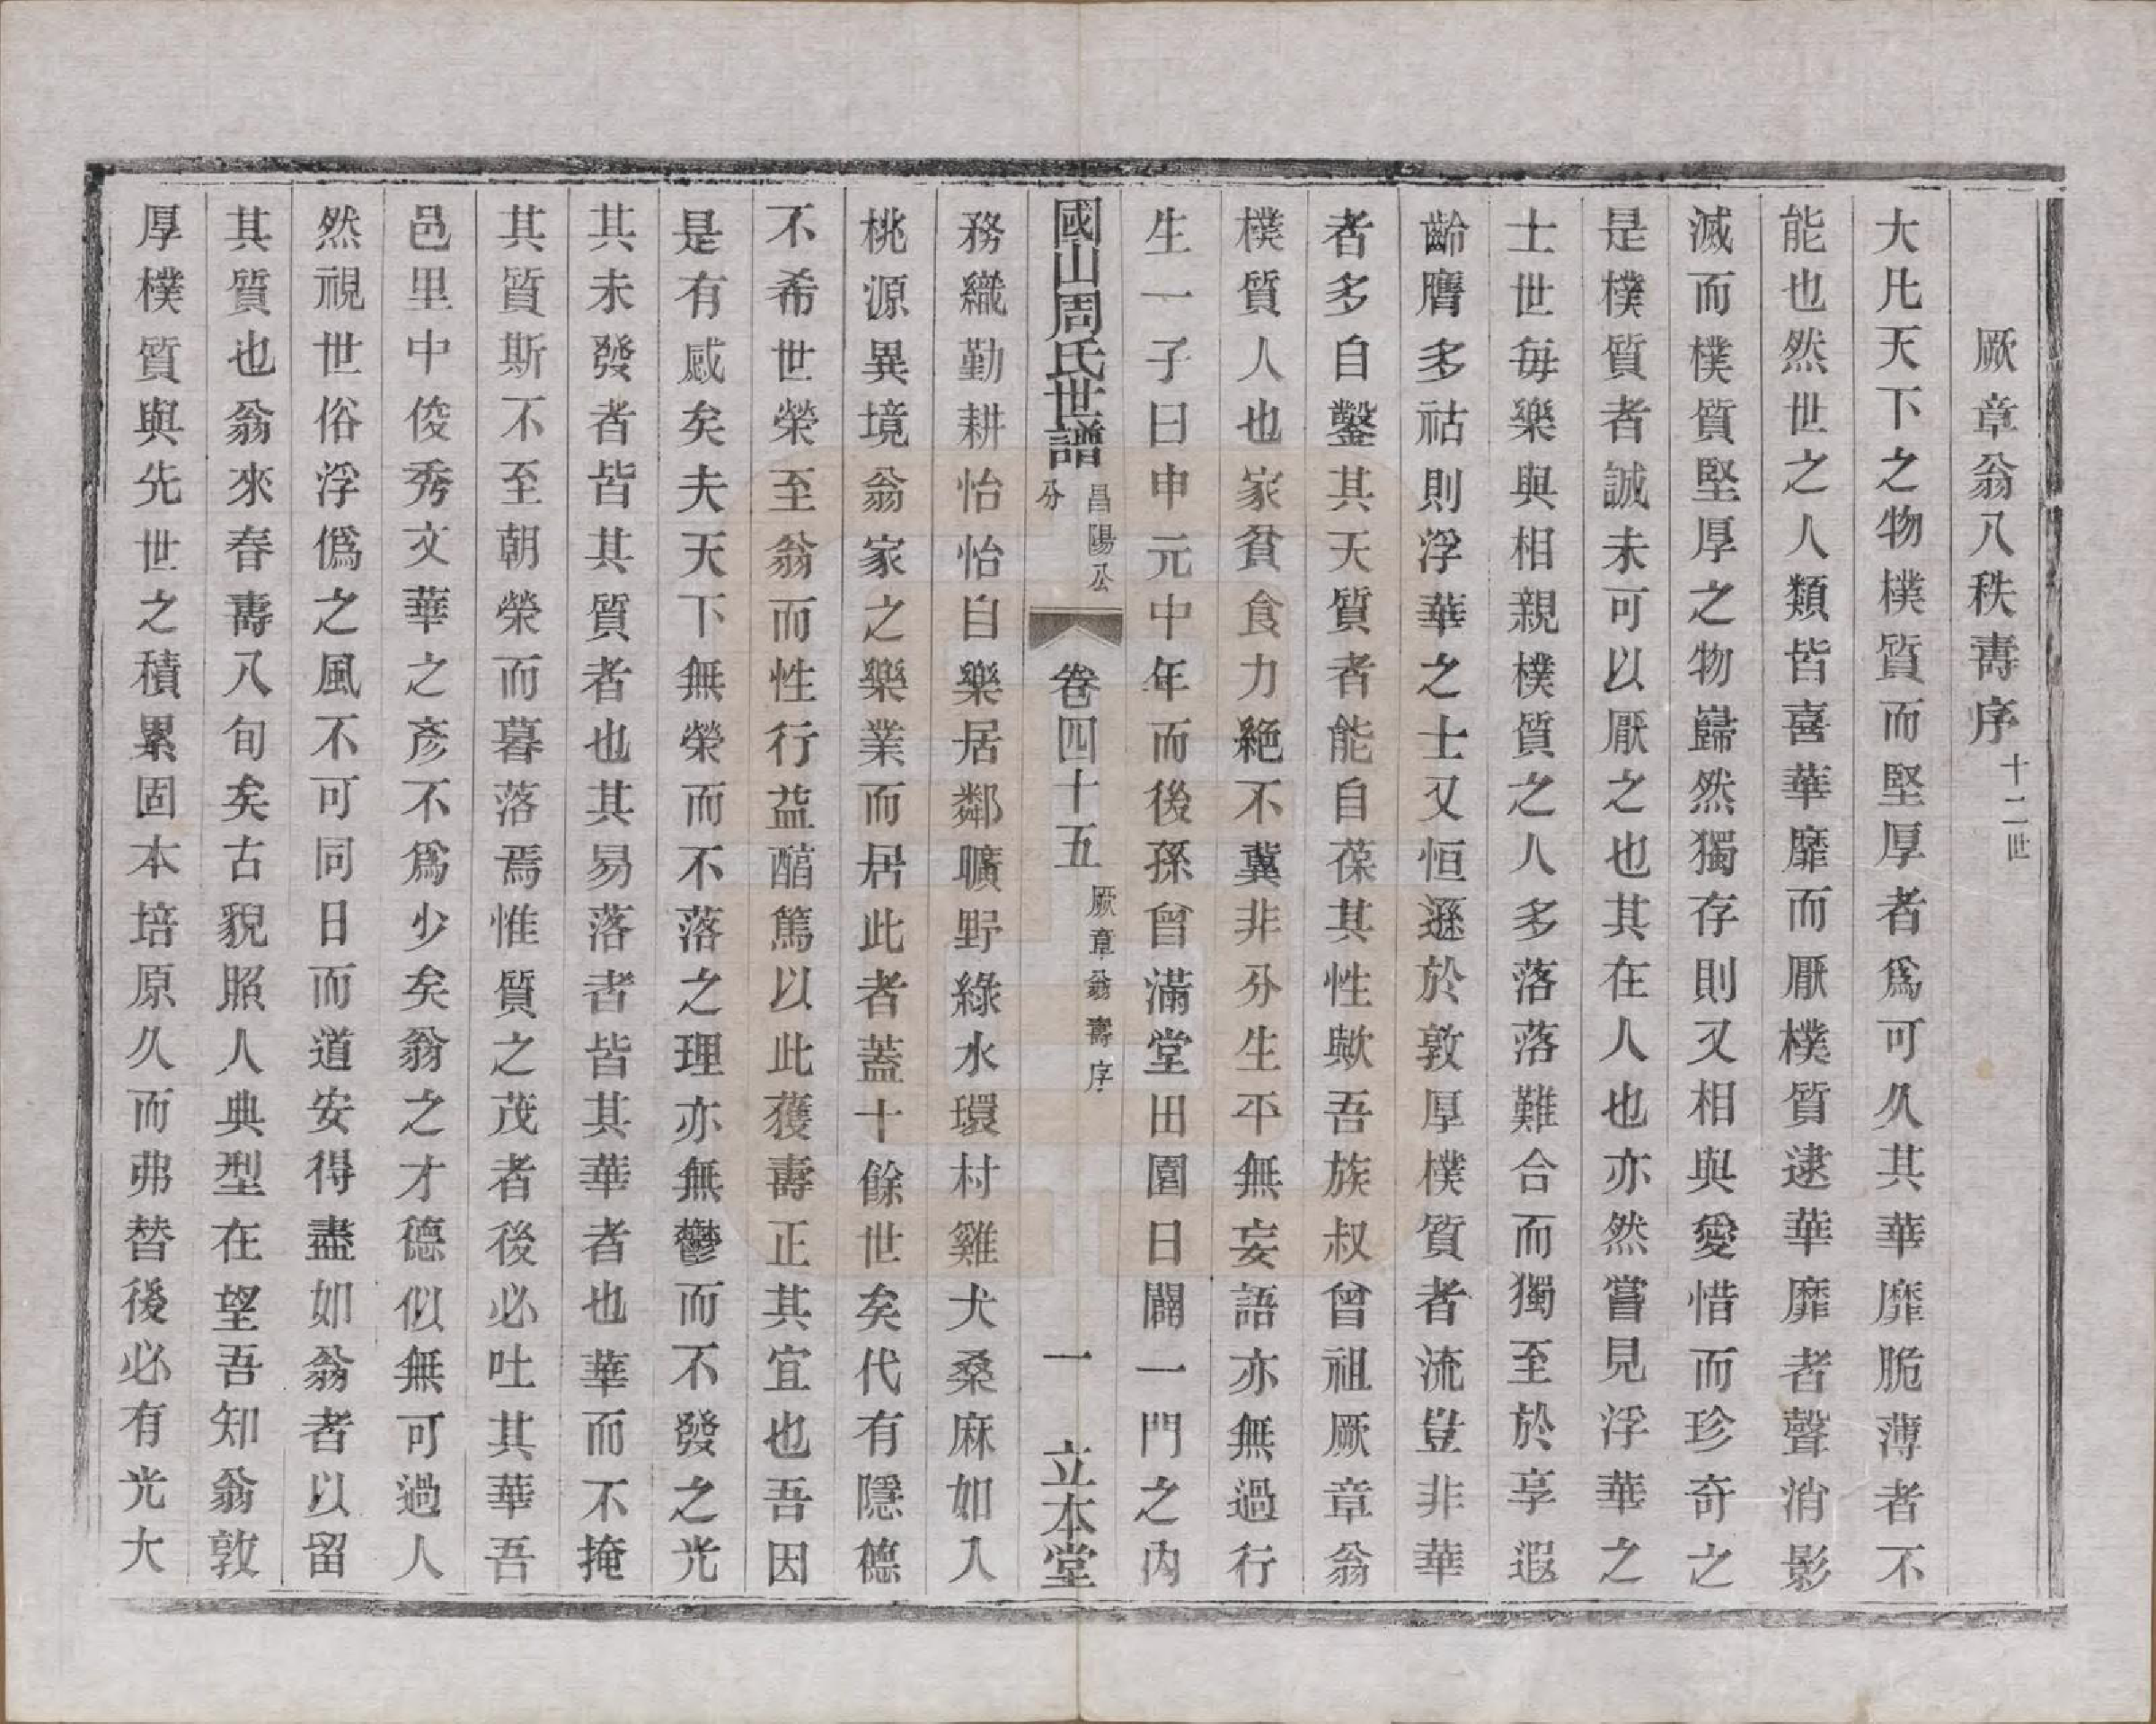 厥章翁八秩壽序十二世
大凡天下之物樸質而堅厚者爲可久其華靡脆薄者不
能也然世之人類皆喜華靡而厭樸質逮華靡者聲消影
滅而樸質堅厚之物巋然獨存則又相與愛惜而珍奇之
是樸質者誠未可以厭之也其在人也亦然嘗見浮華之
士世每樂與相親樸質之人多落落難合而獨至於享遐
齡膺多祜則浮華之士又恒遜於敦厚樸質者流豈非華
者多自鑿其天質者能自葆其性歟吾族叔曾祖厥章翁
樸質人也家貧食力絶不冀非分生平無妄語亦無過行
生一子曰申元中年而後孫曾滿堂田園日闢一門之內
國山周氏世譜昌陽公分 卷四十五 厥章翁壽序 一 立本堂
務織勤耕怡怡自樂居鄰曠野綠水環村雞犬桑麻如入
桃源異境翁家之樂業而居此者蓋十餘世矣代有隱德
不希世榮至翁而性行益醕篤以此獲壽正其宜也吾因
是有感矣夫天下無榮而不落之理亦無鬱而不發之光
其未發者皆其質者也其易落者皆其華者也華而不掩
其質斯不至朝榮而暮落焉惟質之茂者後必吐其華吾
邑里中俊秀文華之彥不爲少矣翁之才德似無可過人
然視世俗浮僞之風不可同日而道安得盡如翁者以留
其質也翁來春壽八旬矣古貌照人典型在望吾知翁敦
厚樸質與先世之積累固本培原久而弗替後必有光大